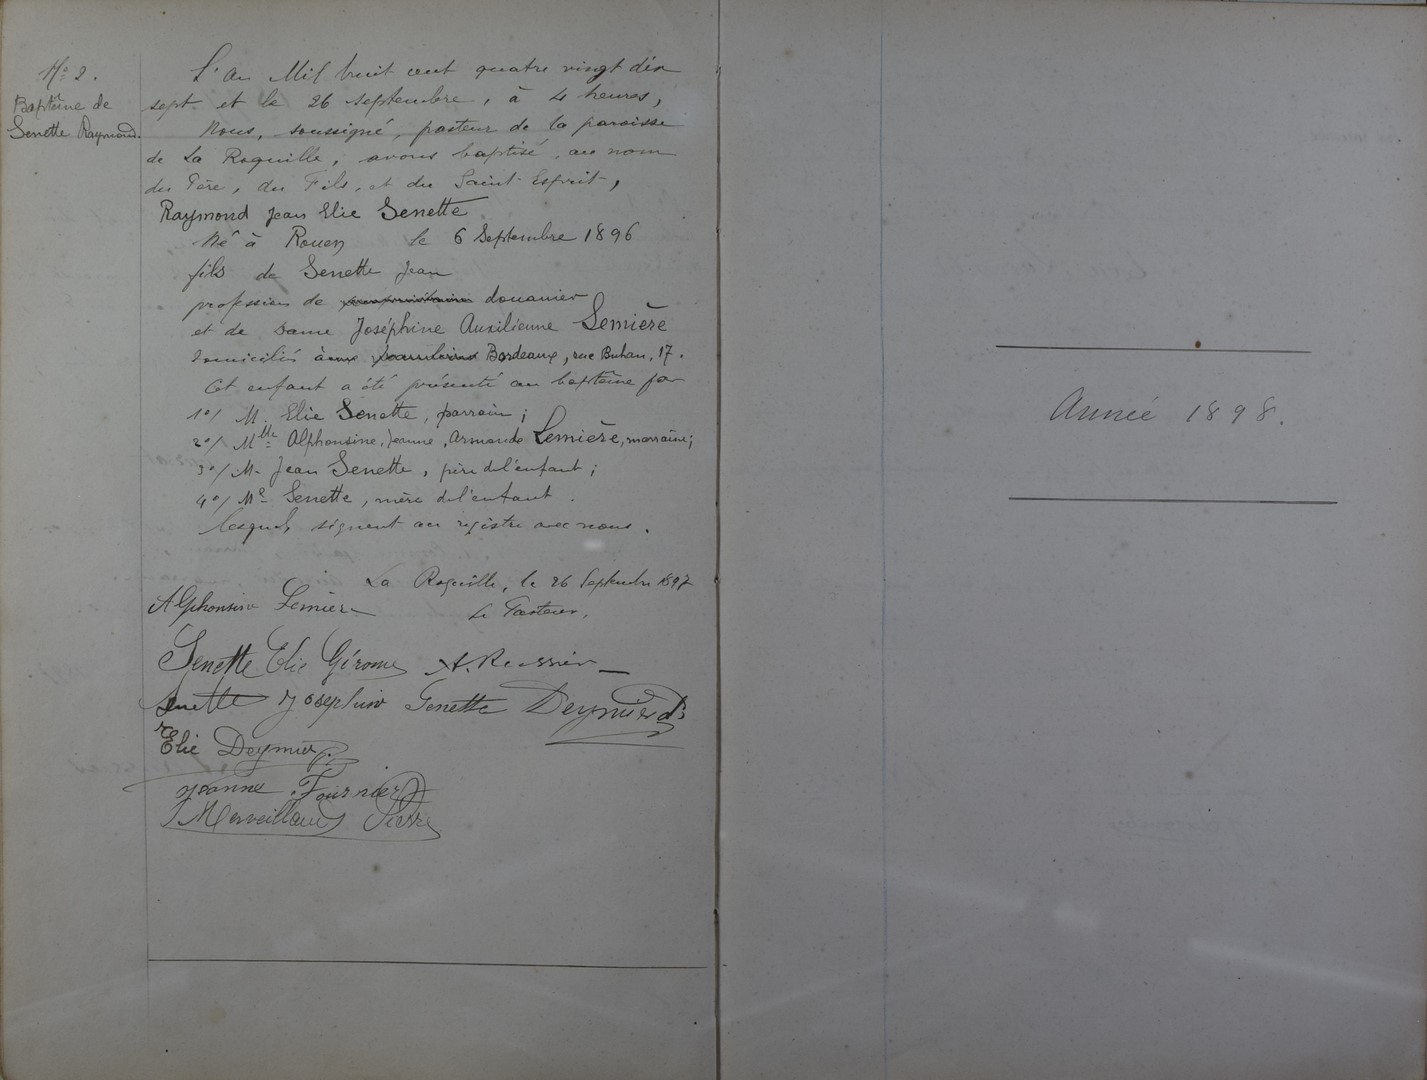 No 2.
Baptême de
Senette Raymond.
L'an Mil huit cent quatre vingt dix
sept et le 26 septembre, à 4 heures,
Nous, soussigné, pasteur de la paroisse
de La Roquille, avons baptisé, au nom
du Père, du Fils, et du Saint-Esprit,
Raymond Jean Elie Senette
Né à Rouen le 6 Septembre 1896
fils de Senette Jean
profession de douanier
et de Dame Joséphine Auxilienne Lemière
domiciliés à Bordeaux, rue Buhan, 17.
Cet enfant a été présenté au baptême par
1o/ M. Elie Senette, parrain;
2o/ Mlle Alphonsine, Jeanne, Armande Lemière, marraine;
3o/ M. Jean Senette, père de l'enfant;
4o/ Me Senette, mère de l'enfant.
lesquels signent au registre avec nous.
La Roquille, le 26 Septembre 1897
Alphonsine Lemière
Le Pasteur,
Senette Elie Gérome A. Roussier
Senette Joséphine Senette Deymier
Elie Deymier
Jeanne Fournier
Merveillaud Pierre
Année 1898.